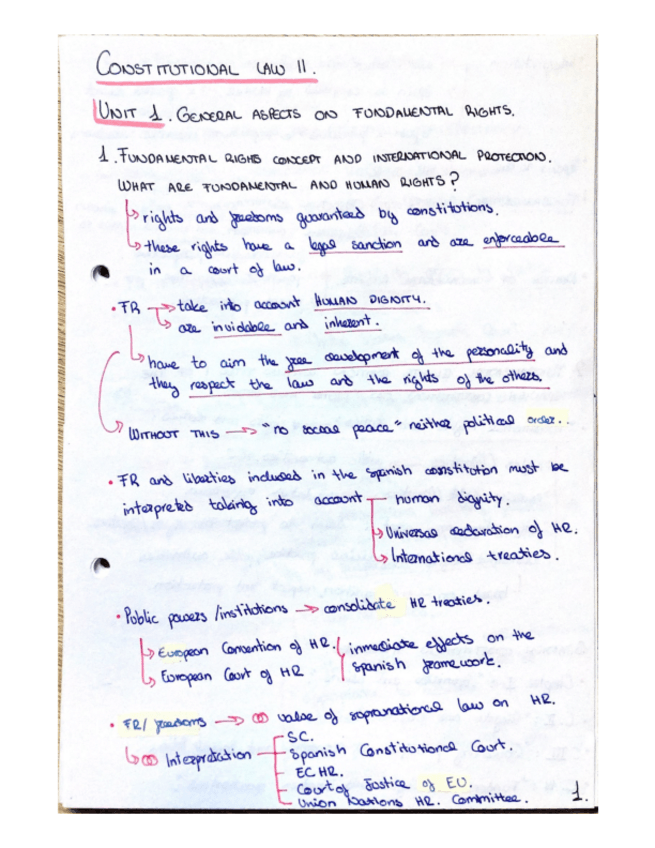 CONSTITUTIONAL LAW II.
UNIT 1. GENERAL ASPECTS ON FUNDAMENTAL RIGHTS.
1. FUNDAMENTAL RIGHS CONCEPT AND INTERNATIONAL PROTECTION.
WHAT ARE FUNDAMENTAL AND HUMAN RIGHTS?
rights and freedoms guaranteed by constitutions.
these rights have a legal sanction and are enforceable
in a court of law.
• FR → take into account HUMAN DIGNITY.
are inviolable and inherent.
have to aim the free development of the personality and
they respect the law and the rights of the others.
WITHOUT THIS → "no social peace" neither political order...
• FR and liberties included in the Spanish constitution must be
interpreted taking into account human dignity.
Universal declaration of HR.
International treaties.
• Public powers/institutions → consolidate HR treaties.
European Convention of HR. inmediate effects on the
European Court of HR Spanish framework.
• FR/ freedoms → value of supranational law on HR.
SC.
Interpretation Spanish Constitutional Court.
ECHR.
Court of Justice of EU.
Union Nations HR. Committee.
1.